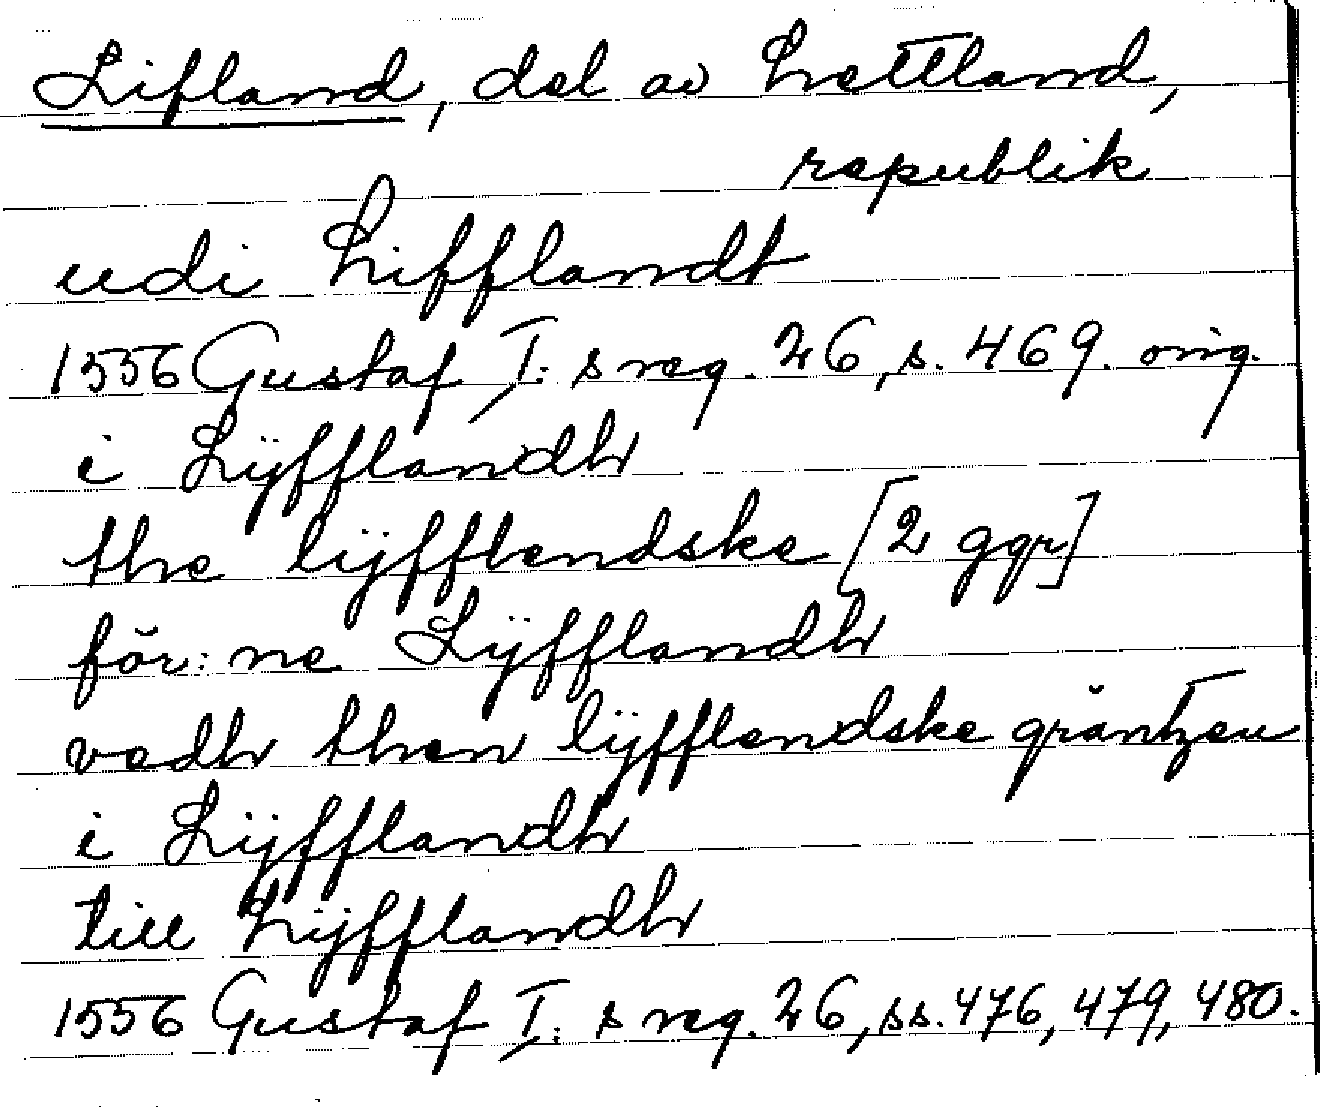 Lifland, del av Lettland,
republik
udi Lifflandt
1556 Gustaf I:s reg. 26, s. 469. orig.
i Lÿfflandh
the lijfflendske [2 ggr]
för:ne Lÿfflandh
vedh then lÿfflendske gräntzen
i Lijfflandh
till Lijfflandh
1556 Gustaf I:s reg. 26, ss. 476, 479, 480.